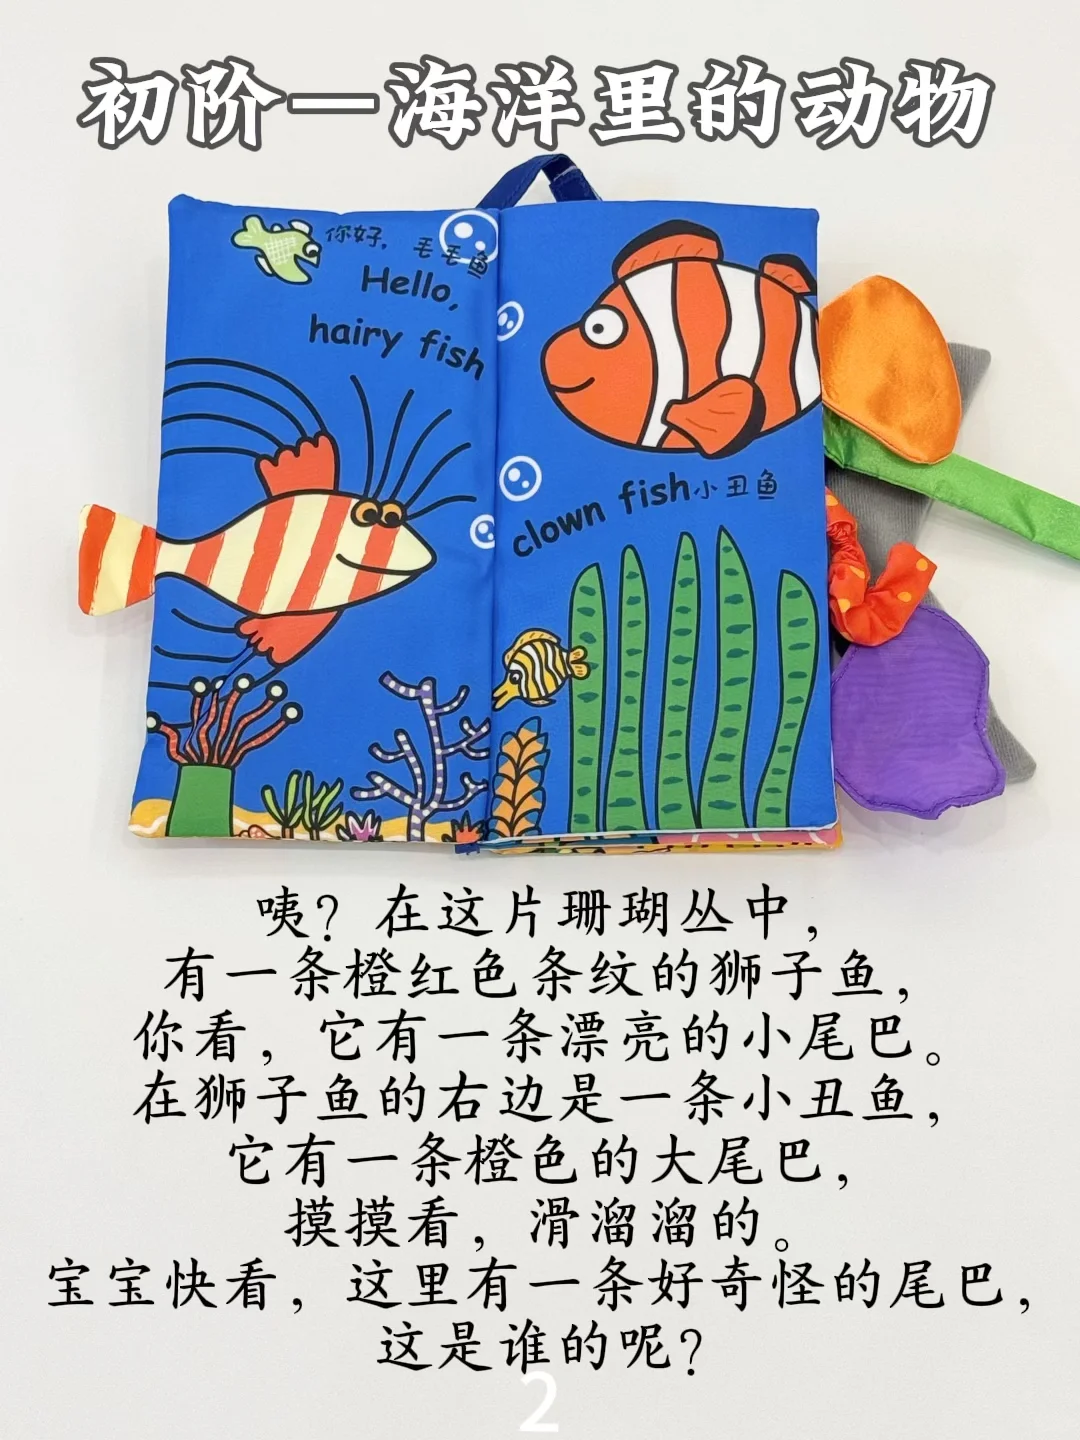 初阶—海洋里的动物
你好，毛毛鱼
Hello,
hairy fish
clown fish小丑鱼
咦？在这片珊瑚丛中，
有一条橙红色条纹的狮子鱼，
你看，它有一条漂亮的小尾巴。
在狮子鱼的右边是一条小丑鱼，
它有一条橙色的大尾巴，
摸摸看，滑溜溜的。
宝宝快看，这里有一条好奇怪的尾巴，
这是谁的呢？
2